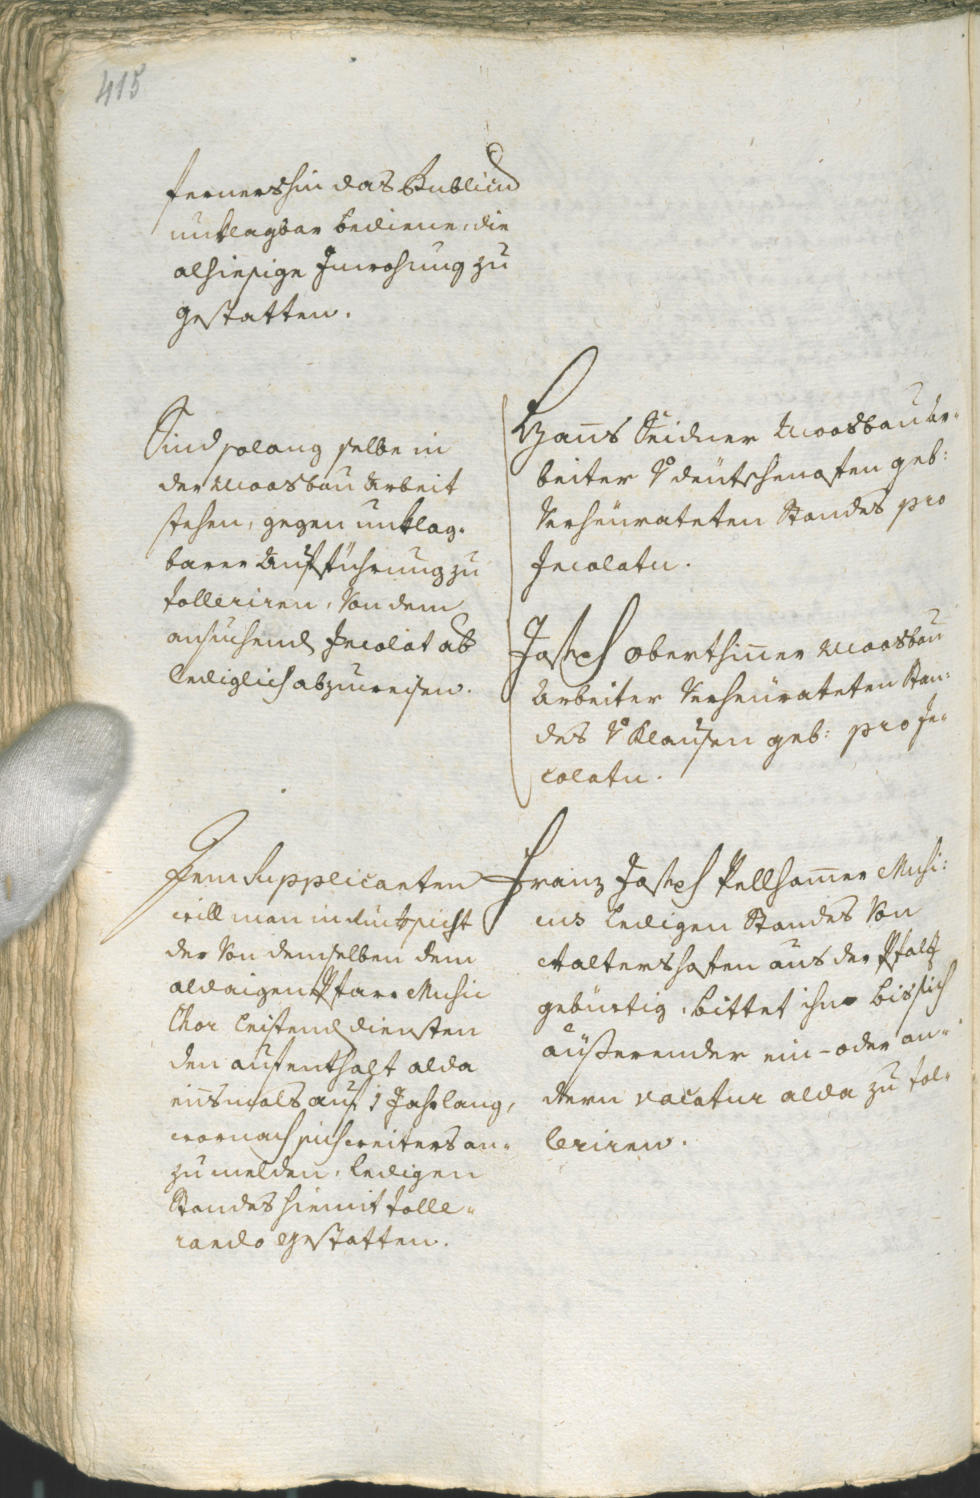 415
fernershin das Publicum
unklagbar bediene, die
alhiesige Inwohnung zu
gestatten.
Sind solang selbe in
der Moosbau Arbeit
stehen, gegen unklag-
barer Aufführung zu
tolleriren, von dem
ansuchend Incolat ab
lediglich abzuweisen.
Hanns Neidner Moosbau Ar-
beiter v deütschenofen geb:
Verheürateten Standes pro
Incolatu.
Joseph oberthiner Moosbau
Arbeiter Verheürateten Stan-
des v Klausen geb: pro In-
colatu.
Dem Supplicanten
will man in rücksicht
der von demselben dem
aldaigen Pfarr Music
Chor leistend diensten
den aufenthalt alda
einsmals auf 1 Jahr lang,
wornach sich weiters an-
zumelden, ledigen
Standes hiemit tolle-
rando gestatten.
Franz Joseph Pellhamer Musi-
cus ledigen Standes von
aus der Pfalz
gebürtig, bittet ihne bis sich
äußerender ein- oder an-
dern vacatur alda zu tol-
leriren.